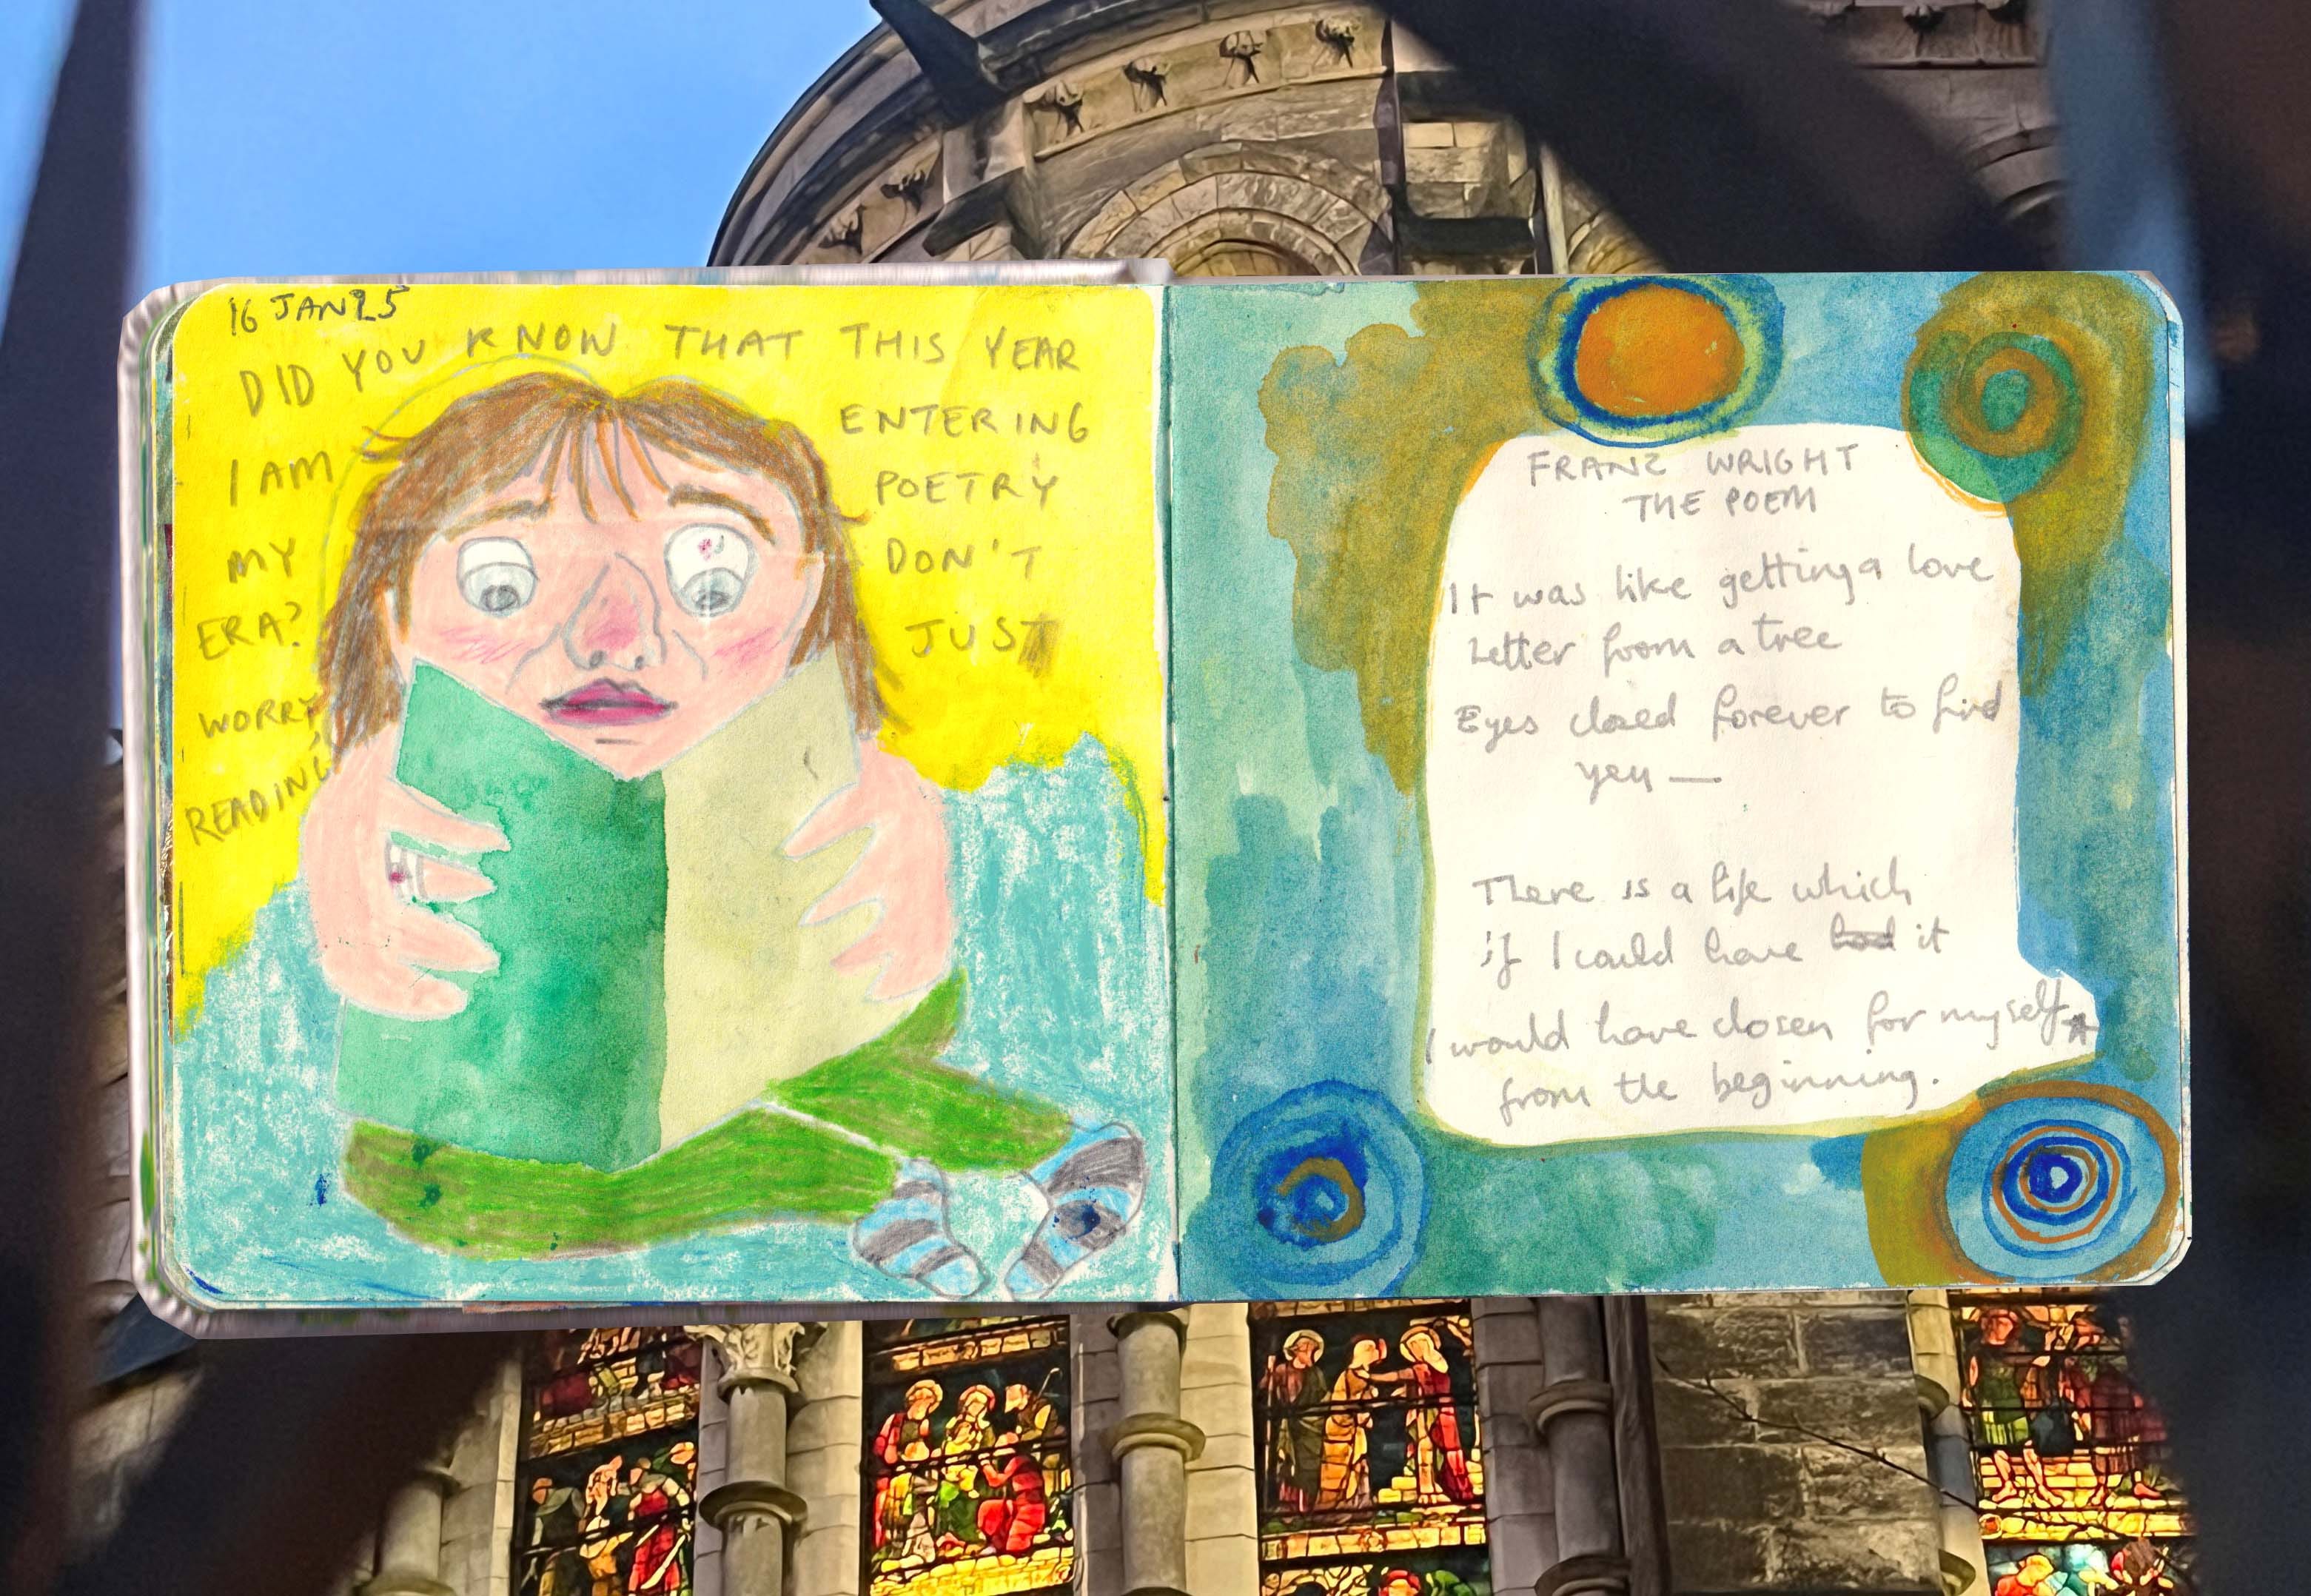 16 JAN25
DID YOU KNOW THAT THIS YEAR
I AM ENTERING
MY POETRY
ERA? DON'T
WORRY, JUST
READING
FRANZ WRIGHT
THE POEM
It was like getting a love
Letter from a tree
Eyes closed forever to find
you —
There is a life which
if I could have had it
I would have chosen for myself
from the beginning.